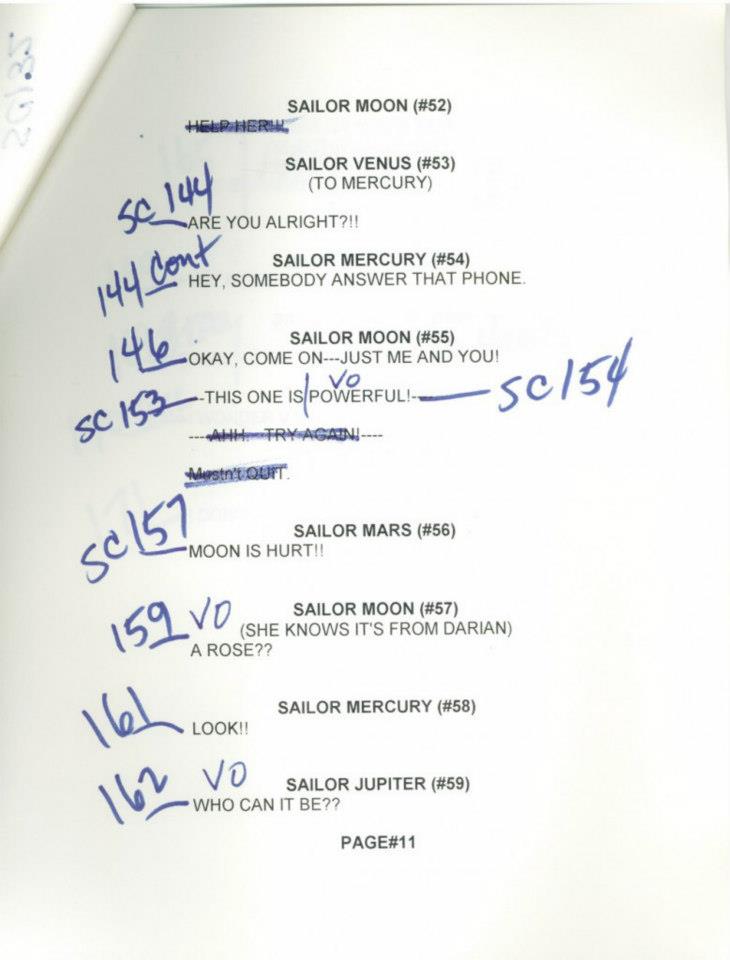 SAILOR MOON (#52)
HELP HER!!!
SAILOR VENUS (#53)
(TO MERCURY)
SC 144
ARE YOU ALRIGHT?!!
144 Cont
SAILOR MERCURY (#54)
HEY, SOMEBODY ANSWER THAT PHONE.
146
SAILOR MOON (#55)
OKAY, COME ON---JUST ME AND YOU!
VO
SC 153 --THIS ONE IS POWERFUL!---- SC 154
----AHH. TRY AGAIN!----
Mustn't QUIT.
SC 157
SAILOR MARS (#56)
MOON IS HURT!!
159 VO
SAILOR MOON (#57)
(SHE KNOWS IT'S FROM DARIAN)
A ROSE??
161
SAILOR MERCURY (#58)
LOOK!!
162 VO
SAILOR JUPITER (#59)
WHO CAN IT BE??
PAGE#11